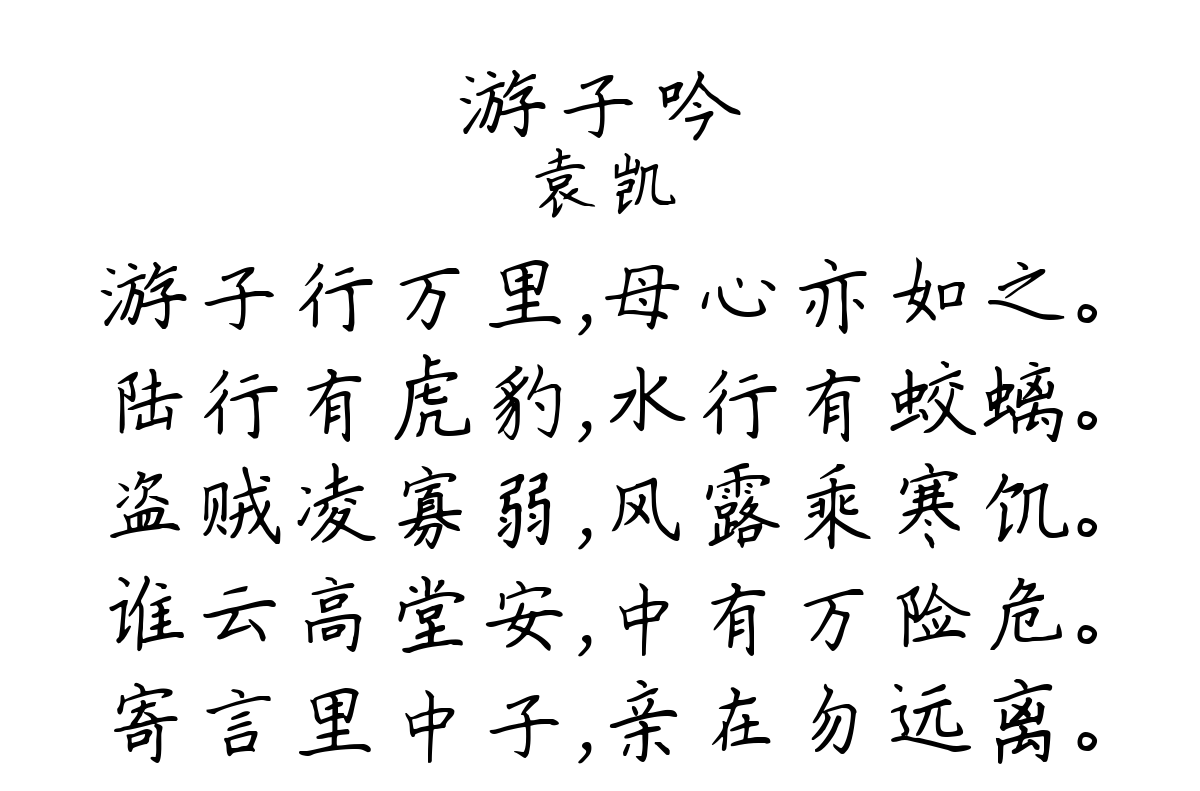 游子吟
袁凯
游子行万里,母心亦如之。
陆行有虎豹,水行有蛟螭。
盗贼凌寡弱,风露乘寒饥。
谁云高堂安,中有万险危。
寄言里中子,亲在勿远离。